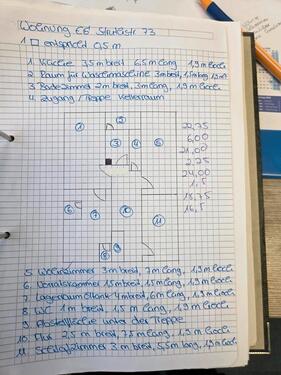 Wohnung EG Straße 73
1 □ entspricht 0,5 m
1 Küche 3,5 m breit 6,5 m lang 1,9 m hoch
2 Raum für Waschmaschine 3 m breit, 1,5 m lang 1,9 m
3 Badezimmer 2 m breit, 3 m lang, 1,9 m hoch
4 Zugang / Treppe Kellerraum
① ② ③ ④ ⑤
22,75
6,00
21,00
2,25
24,00
1,5
18,75
16,5
⑥ ⑦ ⑩ ⑪
⑧ ⑨
5 Wohnzimmer 3 m breit, 7 m lang, 1,9 m hoch
6 Vorratskammer 1,5 m breit 1,5 m lang, 1,9 m hoch
7 Lagerraum Öltank 4 m breit 6 m lang, 1,9 m hoch
8 WC 1 m breit, 1,5 m lang, 1,9 m hoch
9 Abstellfläche unter der Treppe
10 Flur 2,5 m breit, 7,5 m lang, 1,9 m hoch
11 Schlafzimmer 3 m breit, 5,5 m lang, 1,9 m hoch